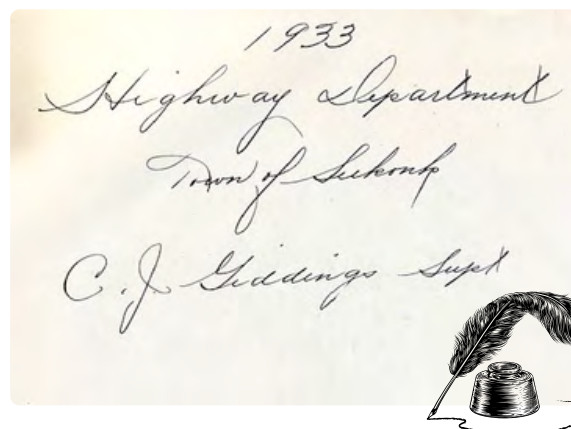 1933
Highway Department
Town of Seekonk
C. J. Giddings Supt